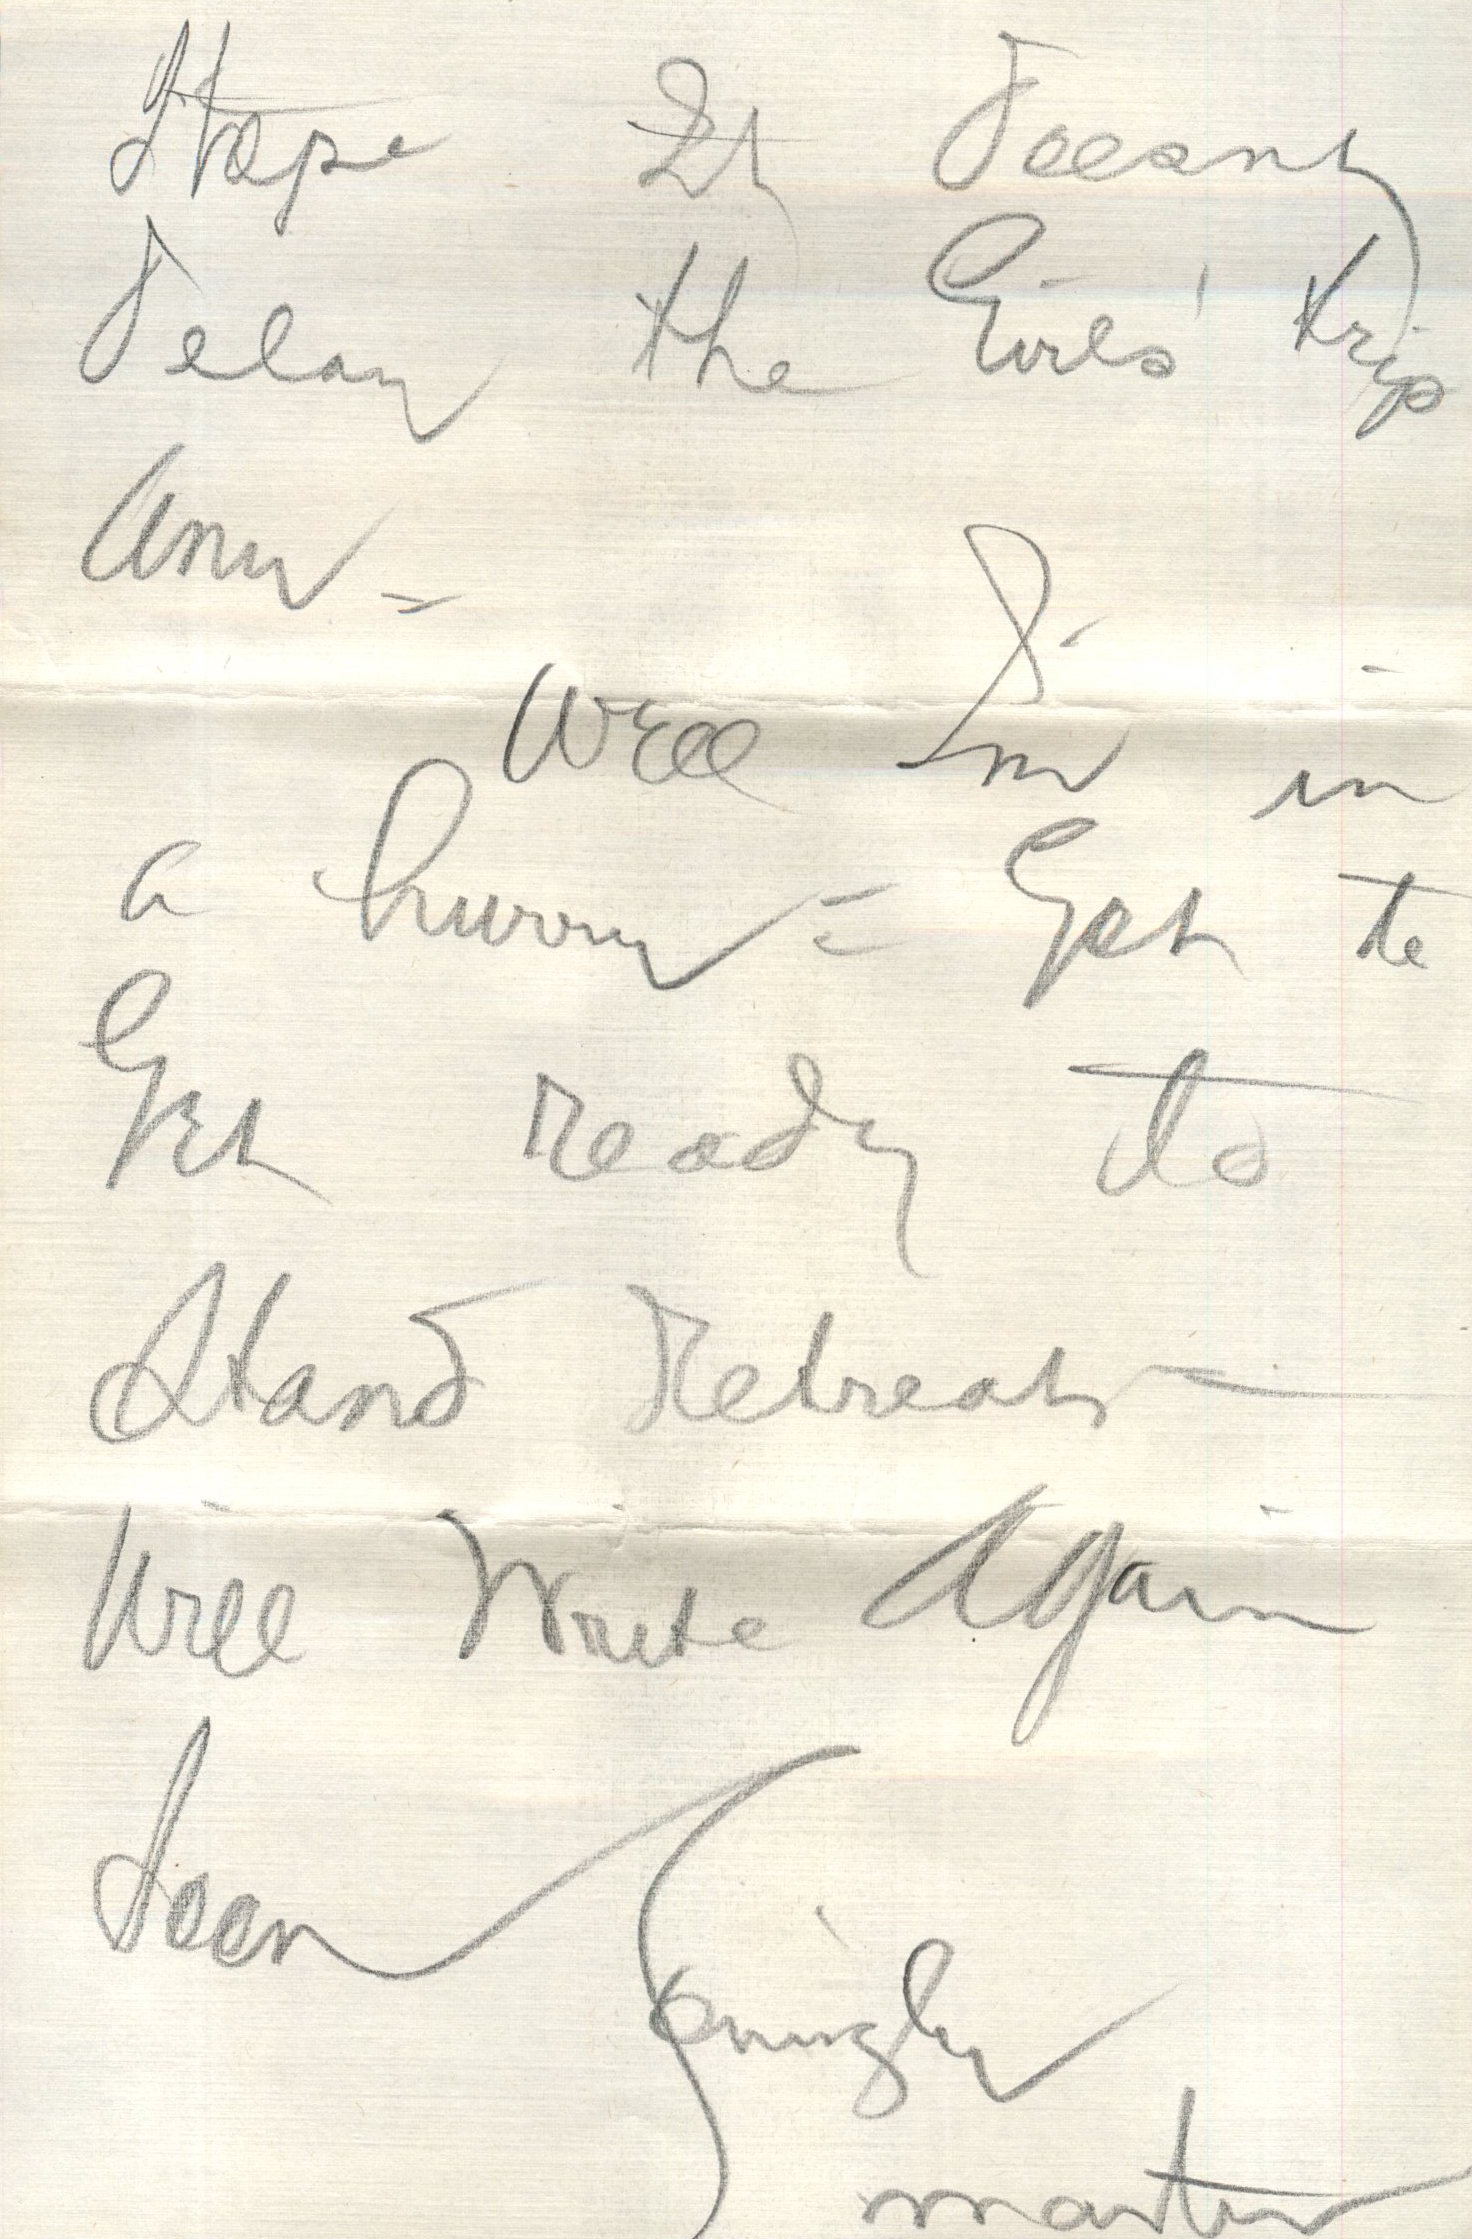 Hope It Doesnt
Delay the Girls' trip
any -
Well I'm in
a hurry = Got to
Get ready to
Stand Retreat -
Will Write Again
Soon Lovingly
Martin